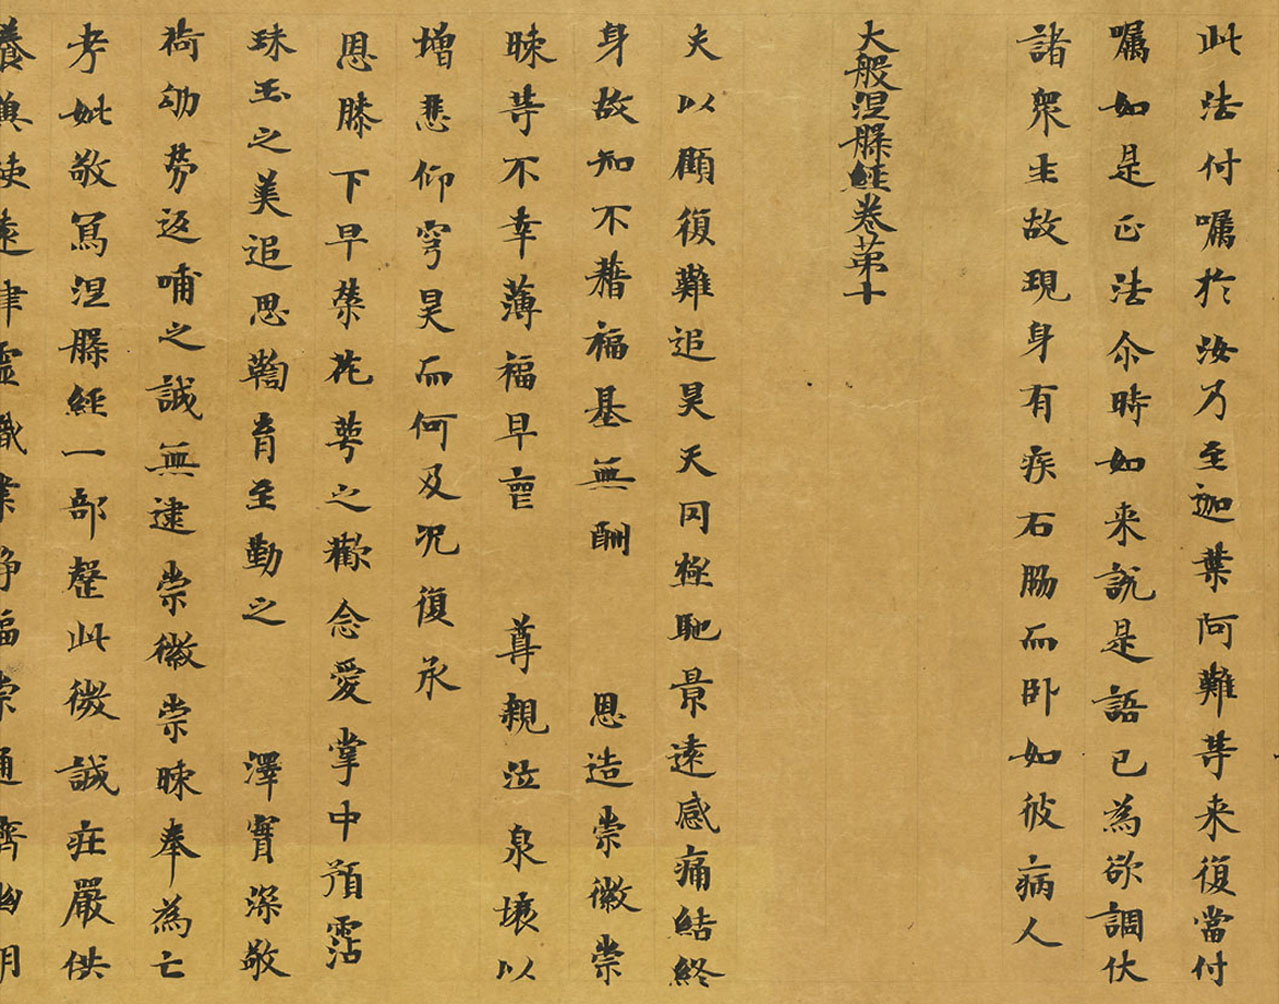 此法付嘱於汝乃至迦葉阿難等来復當付
嘱如是正法尒時如来說是語已為欲調伏
諸衆生故現身有疾右脇而卧如彼病人
大般涅槃經卷第十
夫以顧復難追昊天罔極馳景遠感痛結終
身故知不藉福基無酬 恩造崇徽崇
暕等不幸薄福早亶 尊親泣泉壤以
增悲仰穹昊而何及况復承
恩膝下早榮花萼之歡念愛掌中預霑
珠玉之美追思鞠育至勤之 澤實深敬
荷劬勞返哺之誠無逮崇徽崇暕奉為亡
考妣敬寫涅槃經一部罄此微誠莊嚴供
養冀使遠津靈識業淨福崇通濟幽明